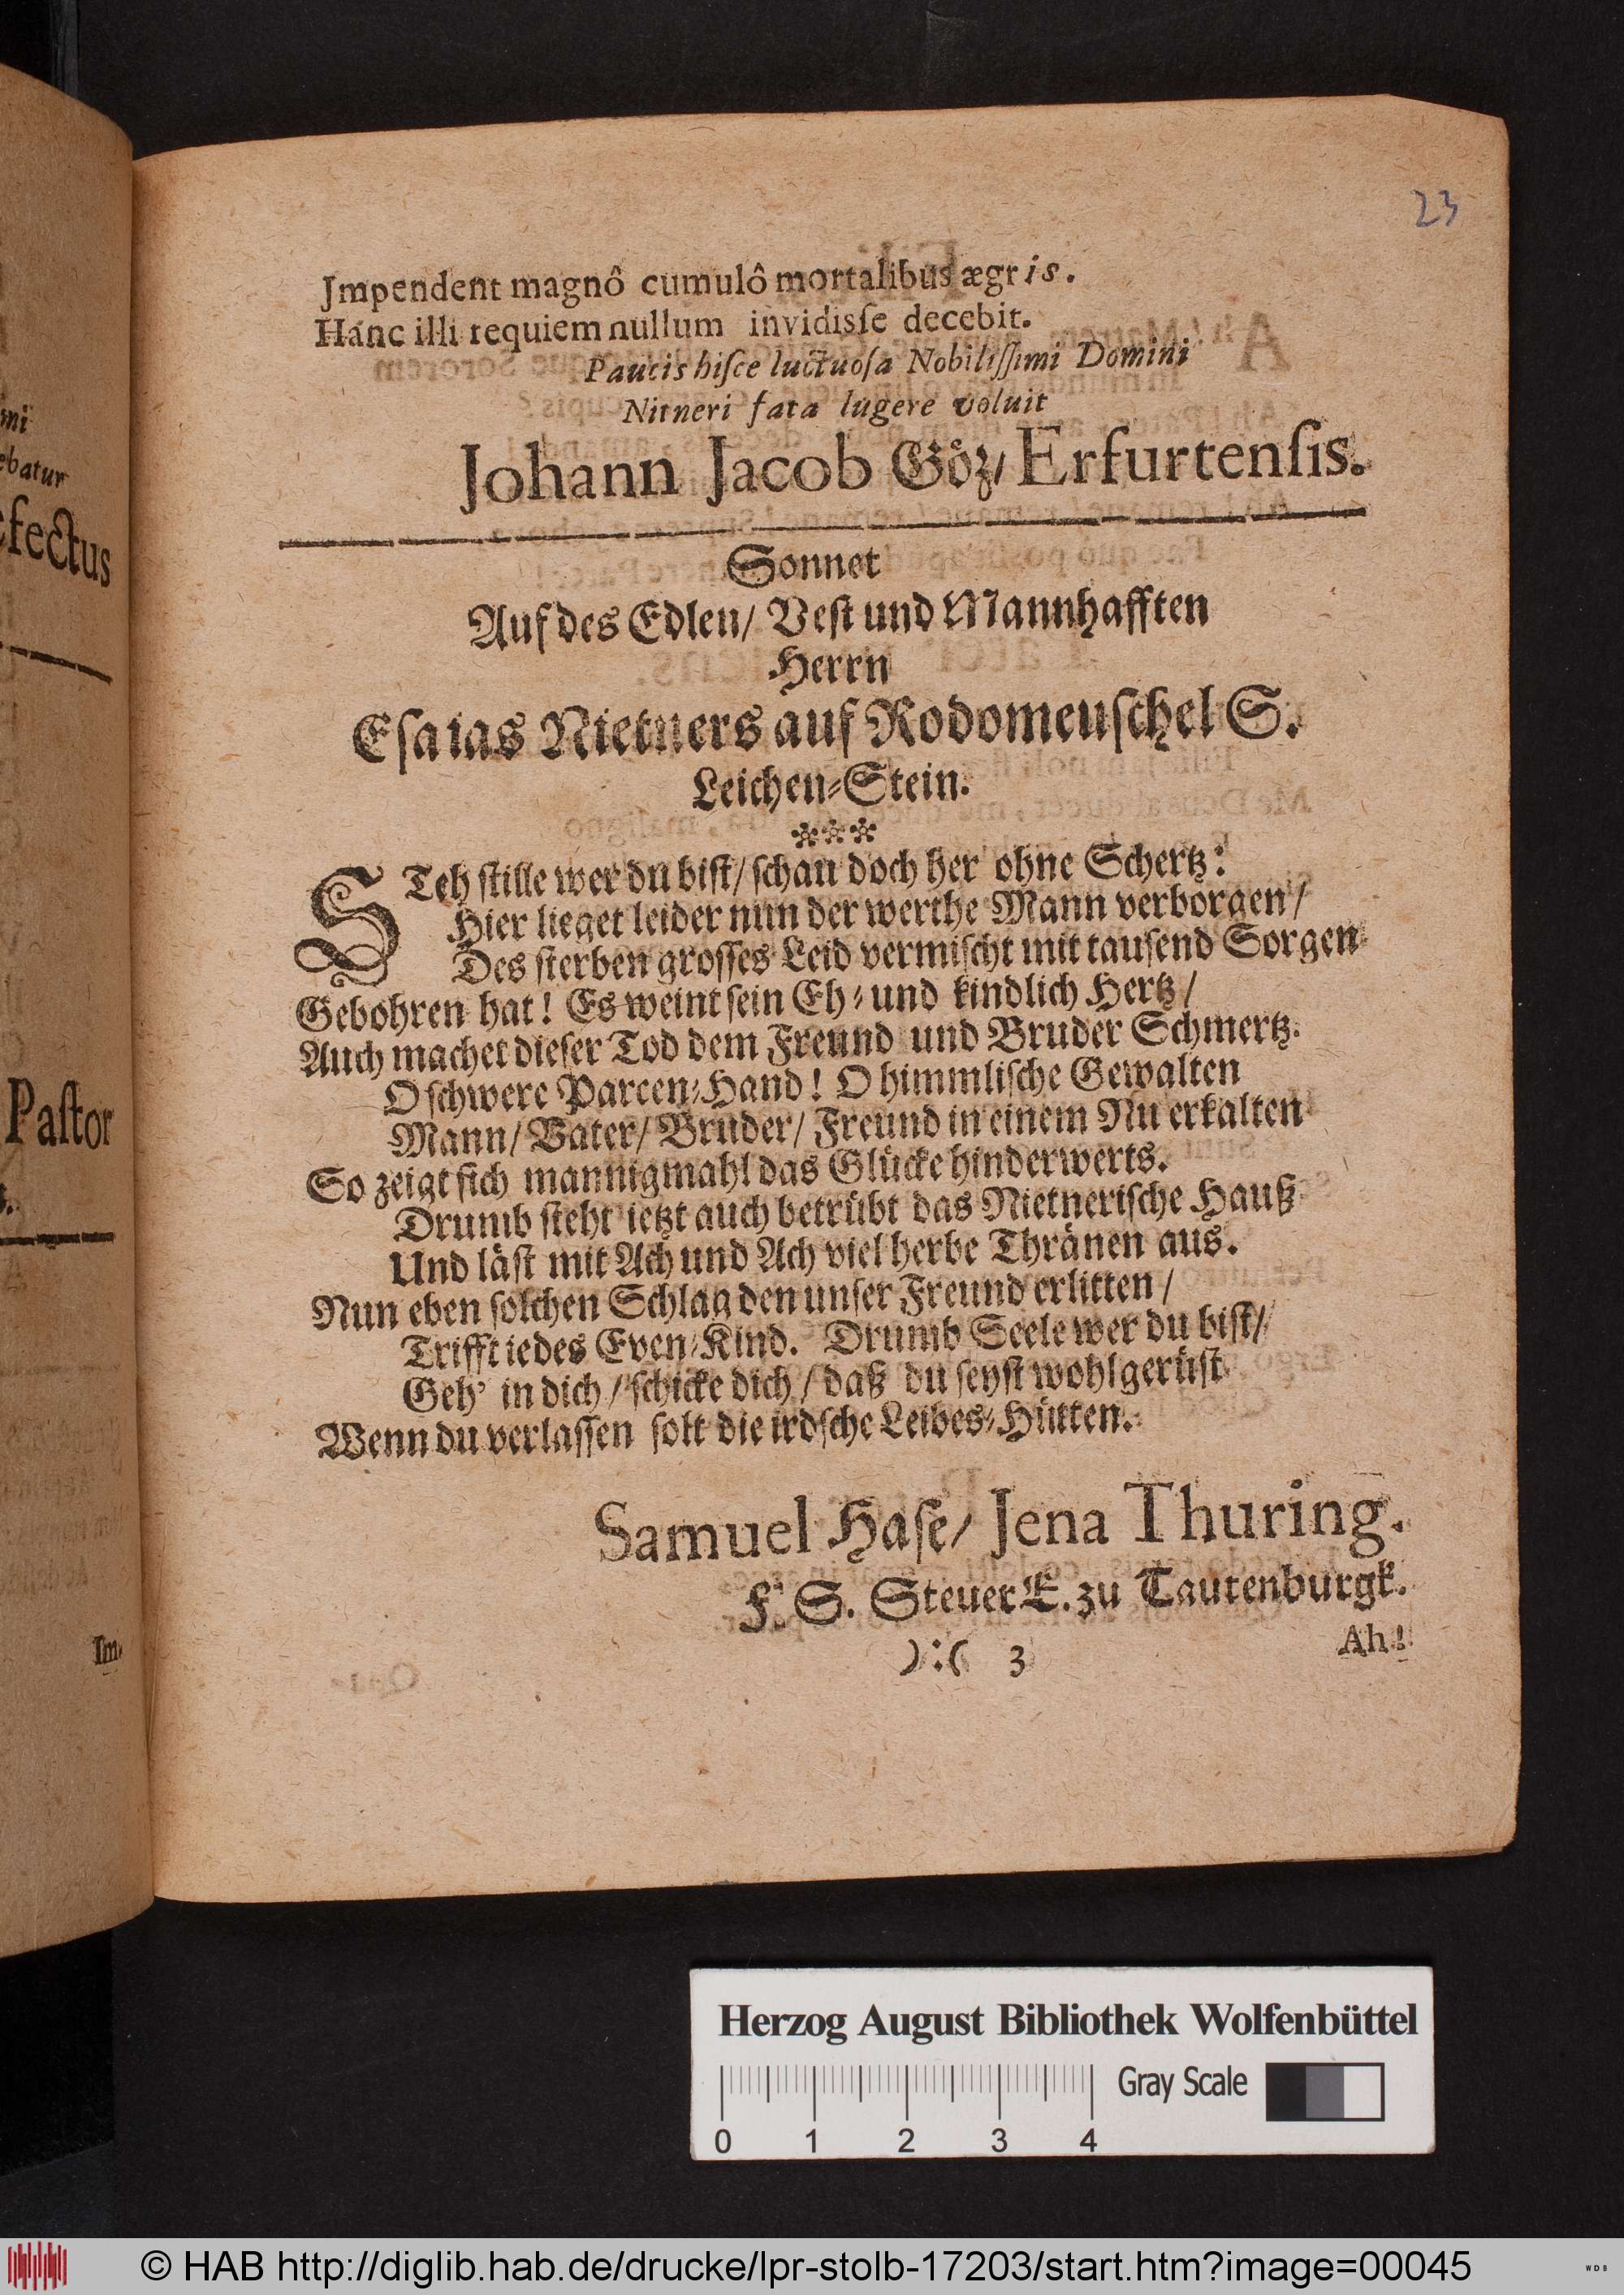 23
Jmpendent magnô cumulô mortalibus ægris.
Hanc illi requiem nullum invidisſe decebit.
Paucis hiſce luctuoſa Nobiliſſimi Domini
Nitneri fata lugere voluit
Johann Jacob Göz/ Erfurtenſis.
Sonnet
Auf des Edlen/ Veſt und Mannhafften
Herrn
Eſaias Nietners auf Rodomeuſchel S.
Leichen-Stein.
***
STeh ſtille wer du biſt/ ſchau doch her ohne Schertz:
Hier lieget leider nun der werthe Mann verborgen/
Des ſterben groſſes Leid vermiſcht mit tauſend Sorgen
Gebohren hat! Es weint ſein Eh- und kindlich Hertz/
Auch machet dieſer Tod dem Freund und Bruder Schmertz.
O ſchwere Parcen-Hand! O himmliſche Gewalten
Mann/ Vater/ Bruder/ Freund in einem Nu erkalten
So zeigt ſich mannigmahl das Glücke hinderwerts.
Drumb ſteht ietzt auch betrübt das Nietneriſche Hauß
Und läſt mit Ach und Ach viel herbe Thränen aus.
Nun eben ſolchen Schlag den unſer Freund erlitten/
Trifft iedes Even-Kind. Drumb Seele wer du biſt/
Geh' in dich/ ſchicke dich/ daß du ſeyſt wohlgerüſt
Wenn du verlaſſen ſolt die irdſche Leibes-Hütten.
Samuel Haſe/ Jena Thuring.
F. S. Steuer E. zu Tautenburgk.
):( 3
Ah!
mi
ebatur
fectus
Paſtor
Im-
Herzog August Bibliothek Wolfenbüttel
Gray Scale
0 1 2 3 4
© HAB http://diglib.hab.de/drucke/lpr-stolb-17203/start.htm?image=00045
WDB